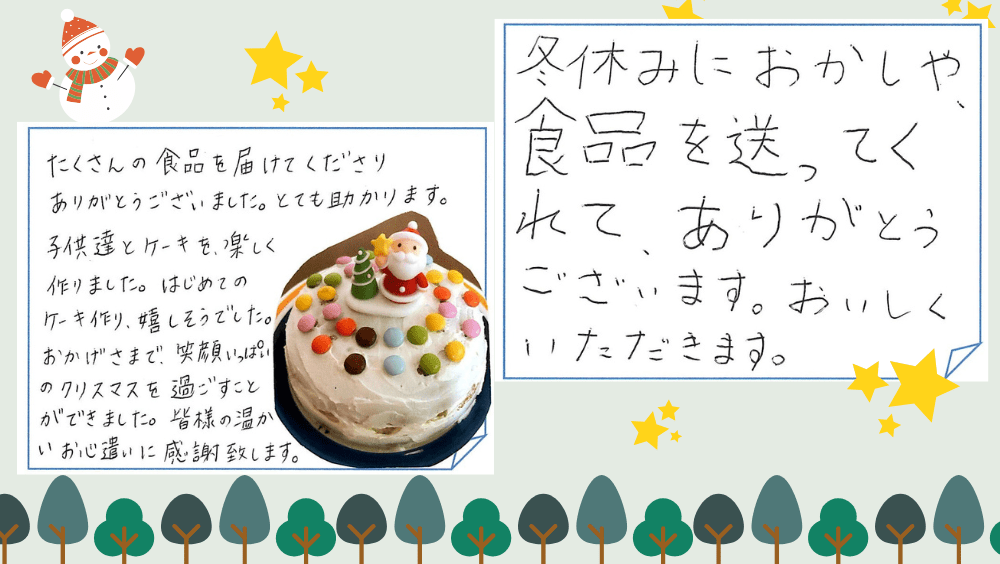 たくさんの食品を届けてくださり
ありがとうございました。とても助かります。
子供達とケーキを、楽しく
作りました。はじめての
ケーキ作り、嬉しそうでした。
おかげさまで、笑顔いっぱい
のクリスマスを過ごすこと
ができました。皆様の温か
いお心遣いに感謝致します。
冬休みにおかしや、
食品を送ってく
れて、ありがとう
ございます。おいしく
いただきます。